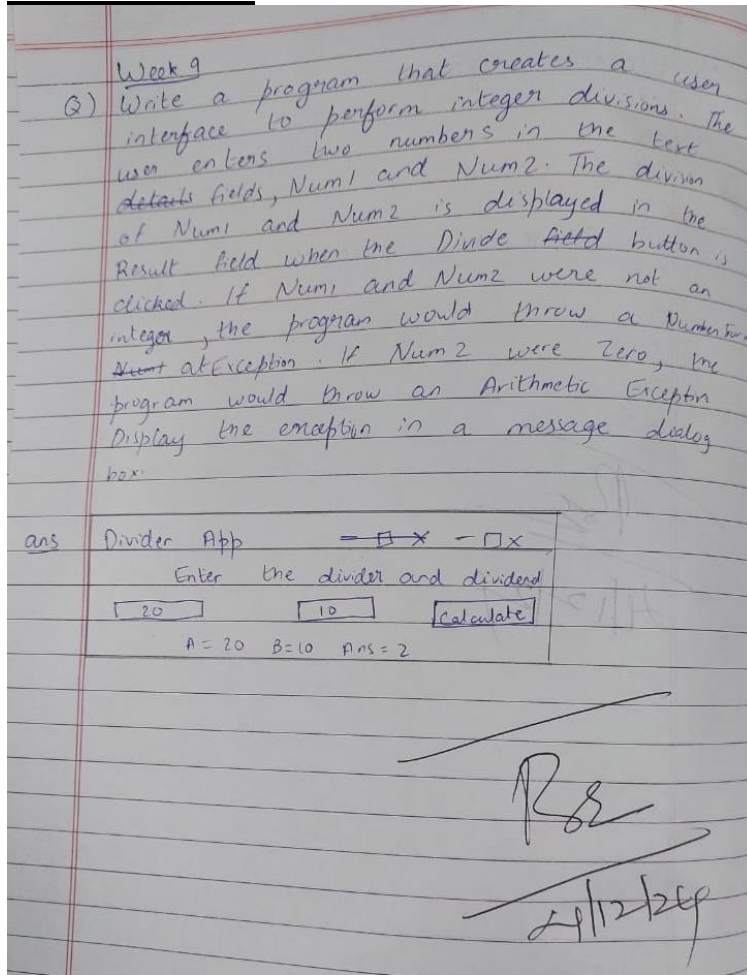 Week 9
Q) Write a program that creates a user
interface to perform integer divisions. The
user enters two numbers in the text
details fields, Num1 and Num2. The division
of Num1 and Num2 is displayed in the
Result field when the Divide field button is
clicked. If Num1 and Num2 were not an
integer, the program would throw a NumberFor-
Numt atException. If Num 2 were Zero, the
program would throw an Arithmetic Exceptn
Display the exception in a message dialog
box.
ans Divider App - □ × - □ ×
Enter the divider and dividend
20 10 Calculate
A = 20 B = 10 Ans = 2
4/12/24